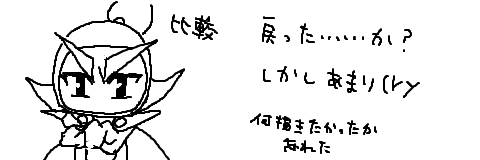 比較
戻った……か?
しかしあまり(ry
何描きたかったか
忘れた